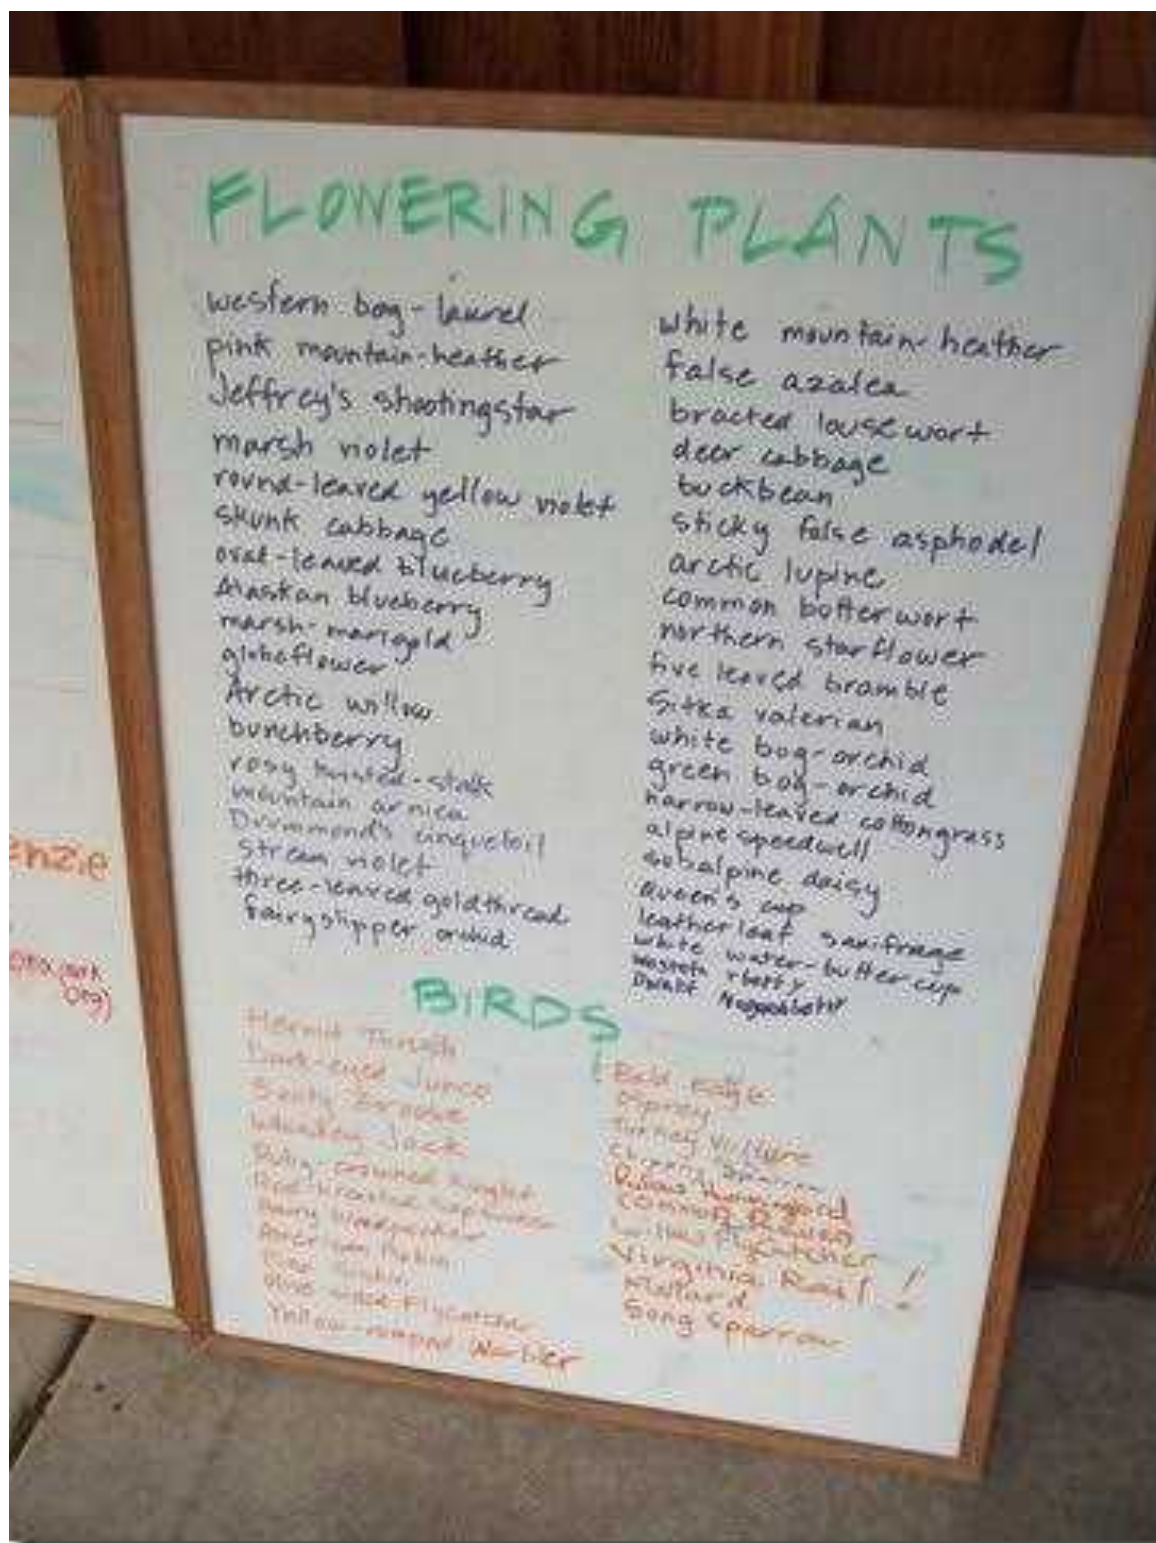 FLOWERING PLANTS
western bog-laurel
pink mountain-heather
Jeffrey's shootingstar
marsh violet
round-leaved yellow violet
skunk cabbage
oval-leaved blueberry
Alaskan blueberry
marsh-marigold
globeflower
Arctic willow
bunchberry
rosy twisted-stalk
mountain arnica
Drummond's cinquefoil
stream violet
three-leaved goldthread
fairyslipper orchid
white mountain-heather
false azalea
bracted lousewort
deer cabbage
buckbean
sticky false asphodel
arctic lupine
common butterwort
northern starflower
five leaved bramble
Sitka valerian
white bog-orchid
green bog-orchid
narrow-leaved cottongrass
alpine speedwell
subalpine daisy
Queen's cup
leatherleaf saxifrage
white water-buttercup
Dwarf
BIRDS
Hermit Thrush
Dark-eyed Junco
Sooty Grouse
Whiskey Jack
Ruby-crowned Kinglet
Red-breasted Sapsucker
Hairy Woodpecker
American Robin
Pine Siskin
Olive sided Flycatcher
Yellow-rumped Warbler
Bald Eagle
Osprey
Turkey Vulture
Rufous Hummingbird
Common Raven
Willow Flycatcher
Virginia Rail!
Mallard
Song Sparrow
enzie
Org)